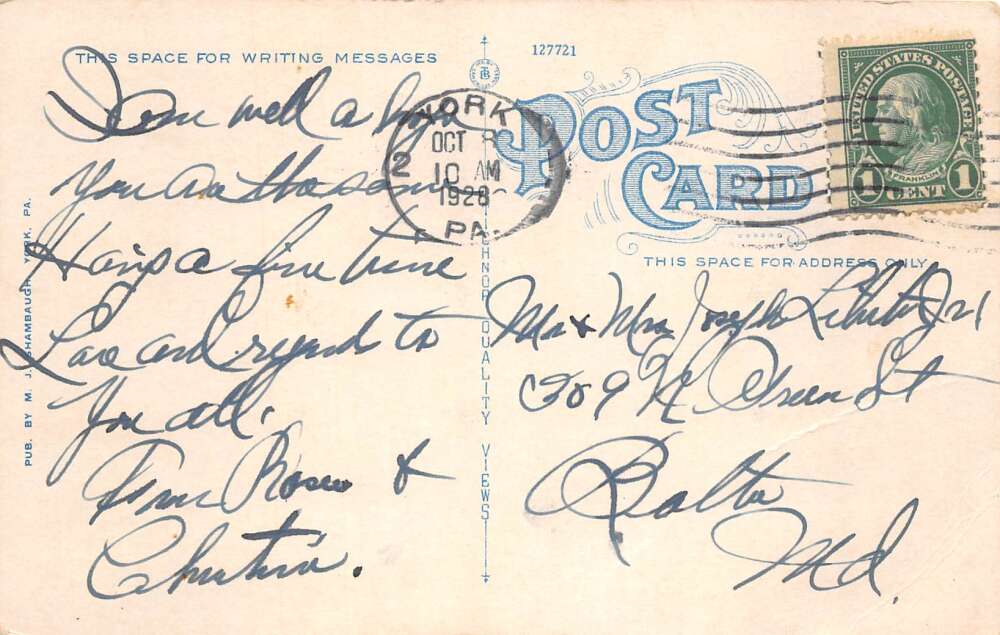 THIS SPACE FOR WRITING MESSAGES
127721
POST
CARD
UNITED STATES POSTAGE
FRANKLIN
1 CENT 1
YORK
OCT 8
10 AM
1928
PA.
2
THIS SPACE FOR ADDRESS ONLY
PUB. BY M. J. SHAMBAUGH, YORK, PA.
TECHNOR QUALITY VIEWS
am well & hope
You are the same
Having a fine time
Love and regards to
You all.
From Rosie &
Christina.
Mr & Mrs Joseph Jr
309 N. Green St
Balto
Md.